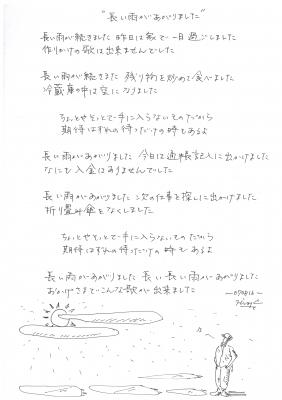 "長い雨があがりました"
長い雨が続きました 昨日は家で一日過ごしました
作りかけの歌は出来ませんでした
長い雨が続きました 残り物を炒めて食べました
冷蔵庫の中は空になりました
ちょっとやそっとで手に入らないそのだから
期待はずれの待つだけの時もあるよ
長い雨があがりました 今日は通帳記入に出かけました
なにも入金はありませんでした
長い雨があがりました 次の仕事を探しに出かけました
折り畳み傘をなくしました
ちょっとやそっとで手に入らないそのだから
期待はずれの待つだけの時もあるよ
長い雨があがりました 長い長い雨があがりました
おかげさまでこんな歌が出来ました